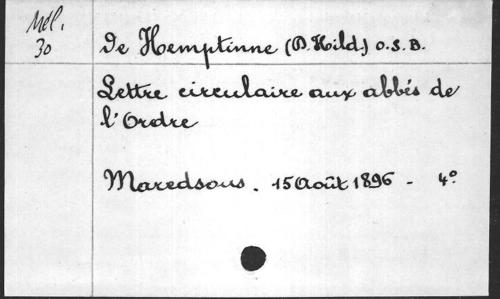 Mél.
30
De Hemptinne (D. Hild.) O.S.B.
Lettre circulaire aux abbés de
l'Ordre
Maredsous. 15 Août 1896 - 4°